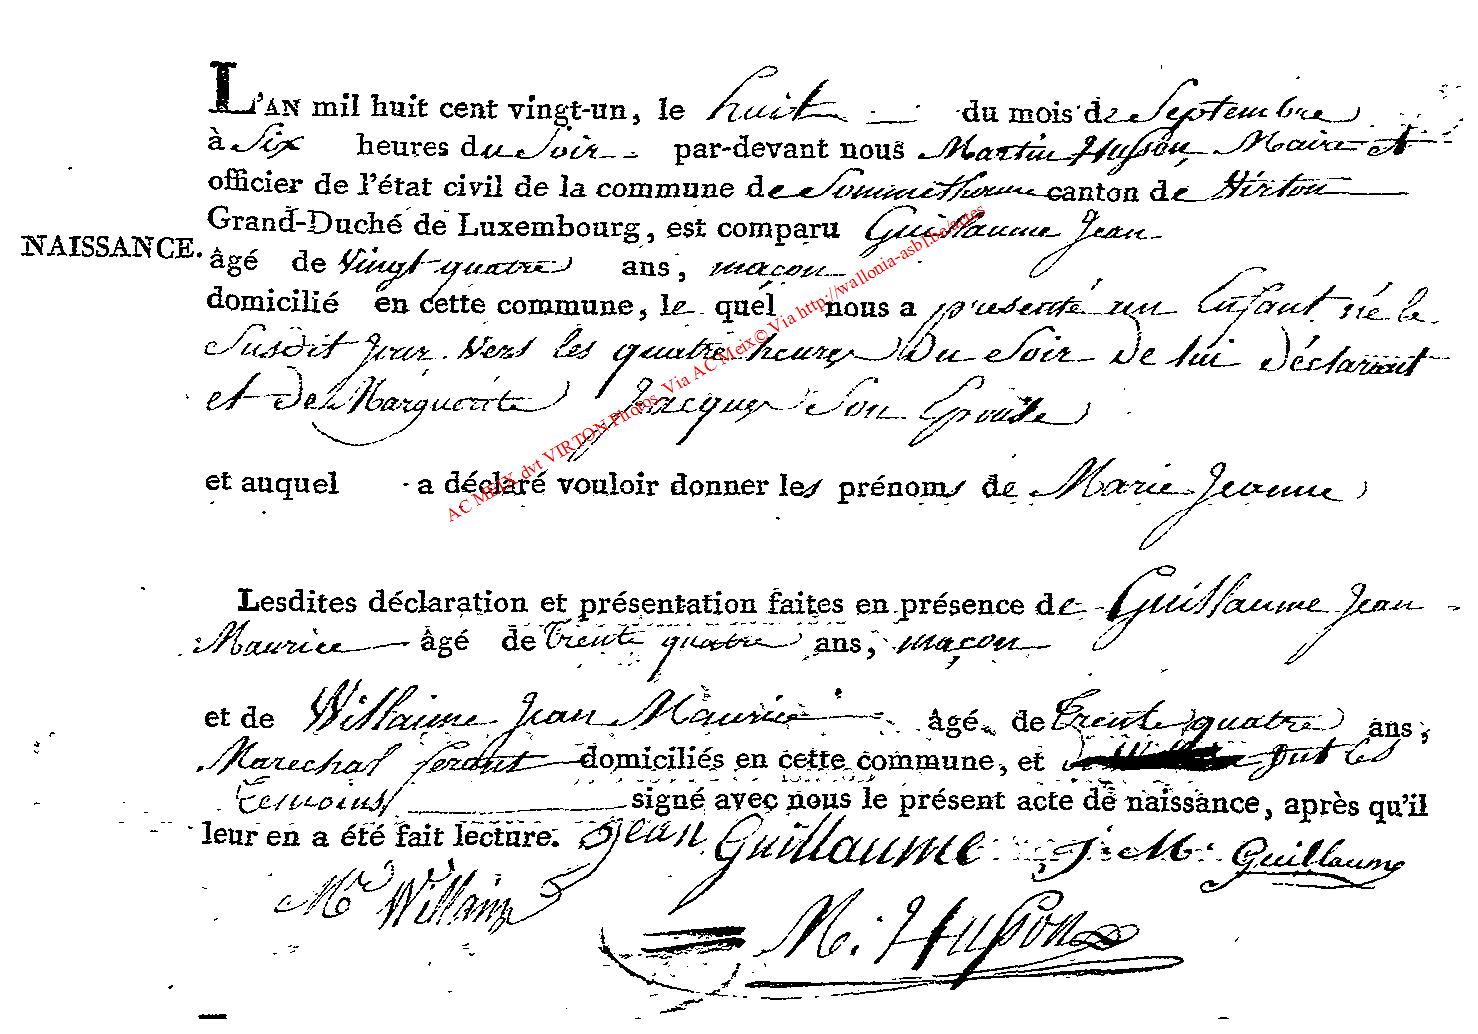 L'AN mil huit cent vingt-un, le huit du mois de Septembre
à Six heures du Soir par-devant nous Martin Husson, Maire et
officier de l'état civil de la commune de Sommethonne canton de Virton
Grand-Duché de Luxembourg, est comparu Guillaume Jean
NAISSANCE.
âgé de Vingt quatre ans, maçon
domicilié en cette commune, le quel nous a présenté un Enfant né le
Susdit Jour Vers les quatre heures Du Soir De lui Déclarant
et De Marguerite Jacques Son Epouse
et auquel a déclaré vouloir donner les prénoms de Marie Jeanne
Lesdites déclaration et présentation faites en présence de Guillaume Jean
Maurice âgé de Trente quatre ans, maçon
et de Willaime Jean Maurice âgé de Trente quatre ans,
Marechal ferant domiciliés en cette commune, et ont les
Temoins signé avec nous le présent acte de naissance, après qu'il
leur en a été fait lecture. Jean Guillaume J. M. Guillaume
Mce Willaime
M. Husson
AC MEIX dvt VIRTON Photos Via AC Meix© Via http://wallonia-asbl.be/actes